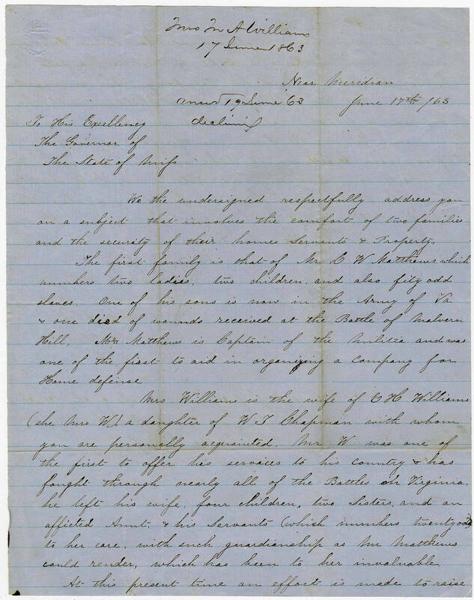 Mrs M A Williams
17 June 1863
Near Meridian
Ansd 19 June 63
June 17th /63
declining
To His Excellency
The Governor of
The State of Missi
We the undersigned respectfully address you
on a subject that involves the comfort of two families
and the security of their homes Servants & Property.
The first family is that of Mr. C W Matthews which
numbers two ladies, two children, and also fifty odd
slaves. One of his sons is now in the Army of Va
& one died of wounds received at the Battle of Malvern
Hill. Mr Matthews is Captain of the Militia and was
one of the first to aid in organizing a company for
Home defense
Mrs Williams is the wife of C H Williams
(she Mrs W.) a daughter of W T Chapman with whom
you are personally acquainted. Mr W was one of
the first to offer his services to his country & has
fought through nearly all of the Battles in Virginia.
he left his wife, four children, two Sisters, and an
afflicted Aunt, & his Servants (which numbers twenty odd)
to her care, with such guardianship as Mr Matthews
could render, which has been to her invaluable.
At this present time an effort is made to raise